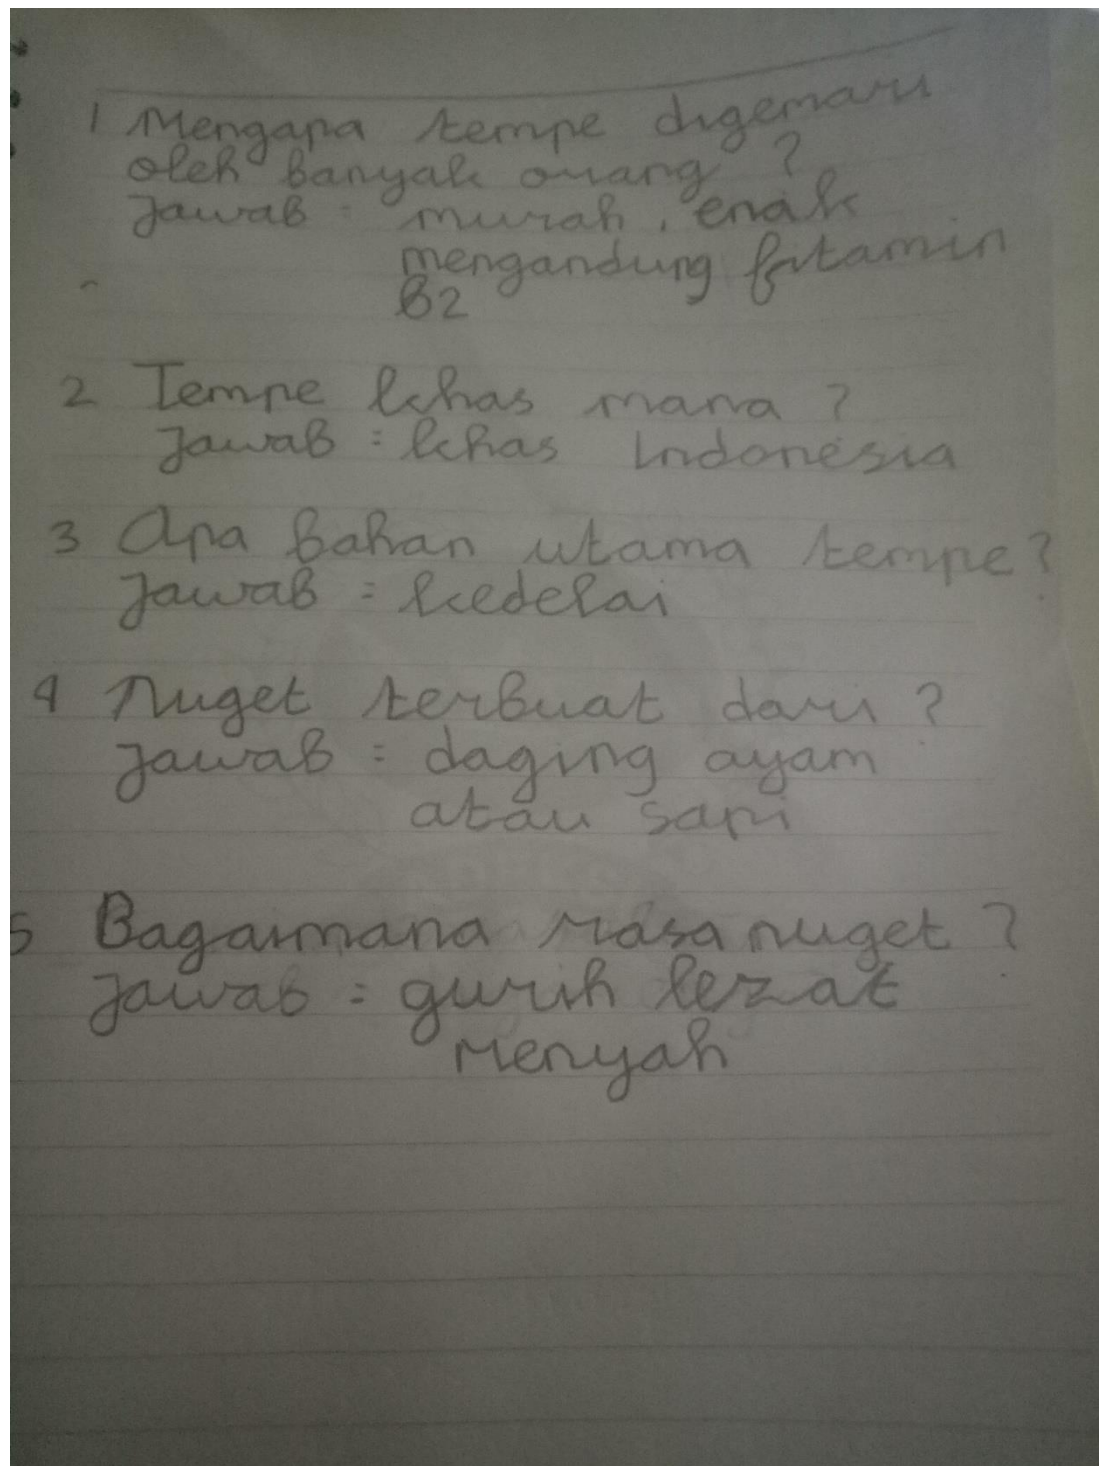 1 Mengapa tempe digemari
oleh banyak orang ?
Jawab : murah, enak
mengandung fitamin
B2
2 Tempe khas mana ?
Jawab : khas Indonesia
3 Apa bahan utama tempe ?
Jawab : kedelai
4 Nuget terbuat dari ?
Jawab : daging ayam
atau sapi
5 Bagaimana rasa nuget ?
Jawab : gurih lezat
renyah